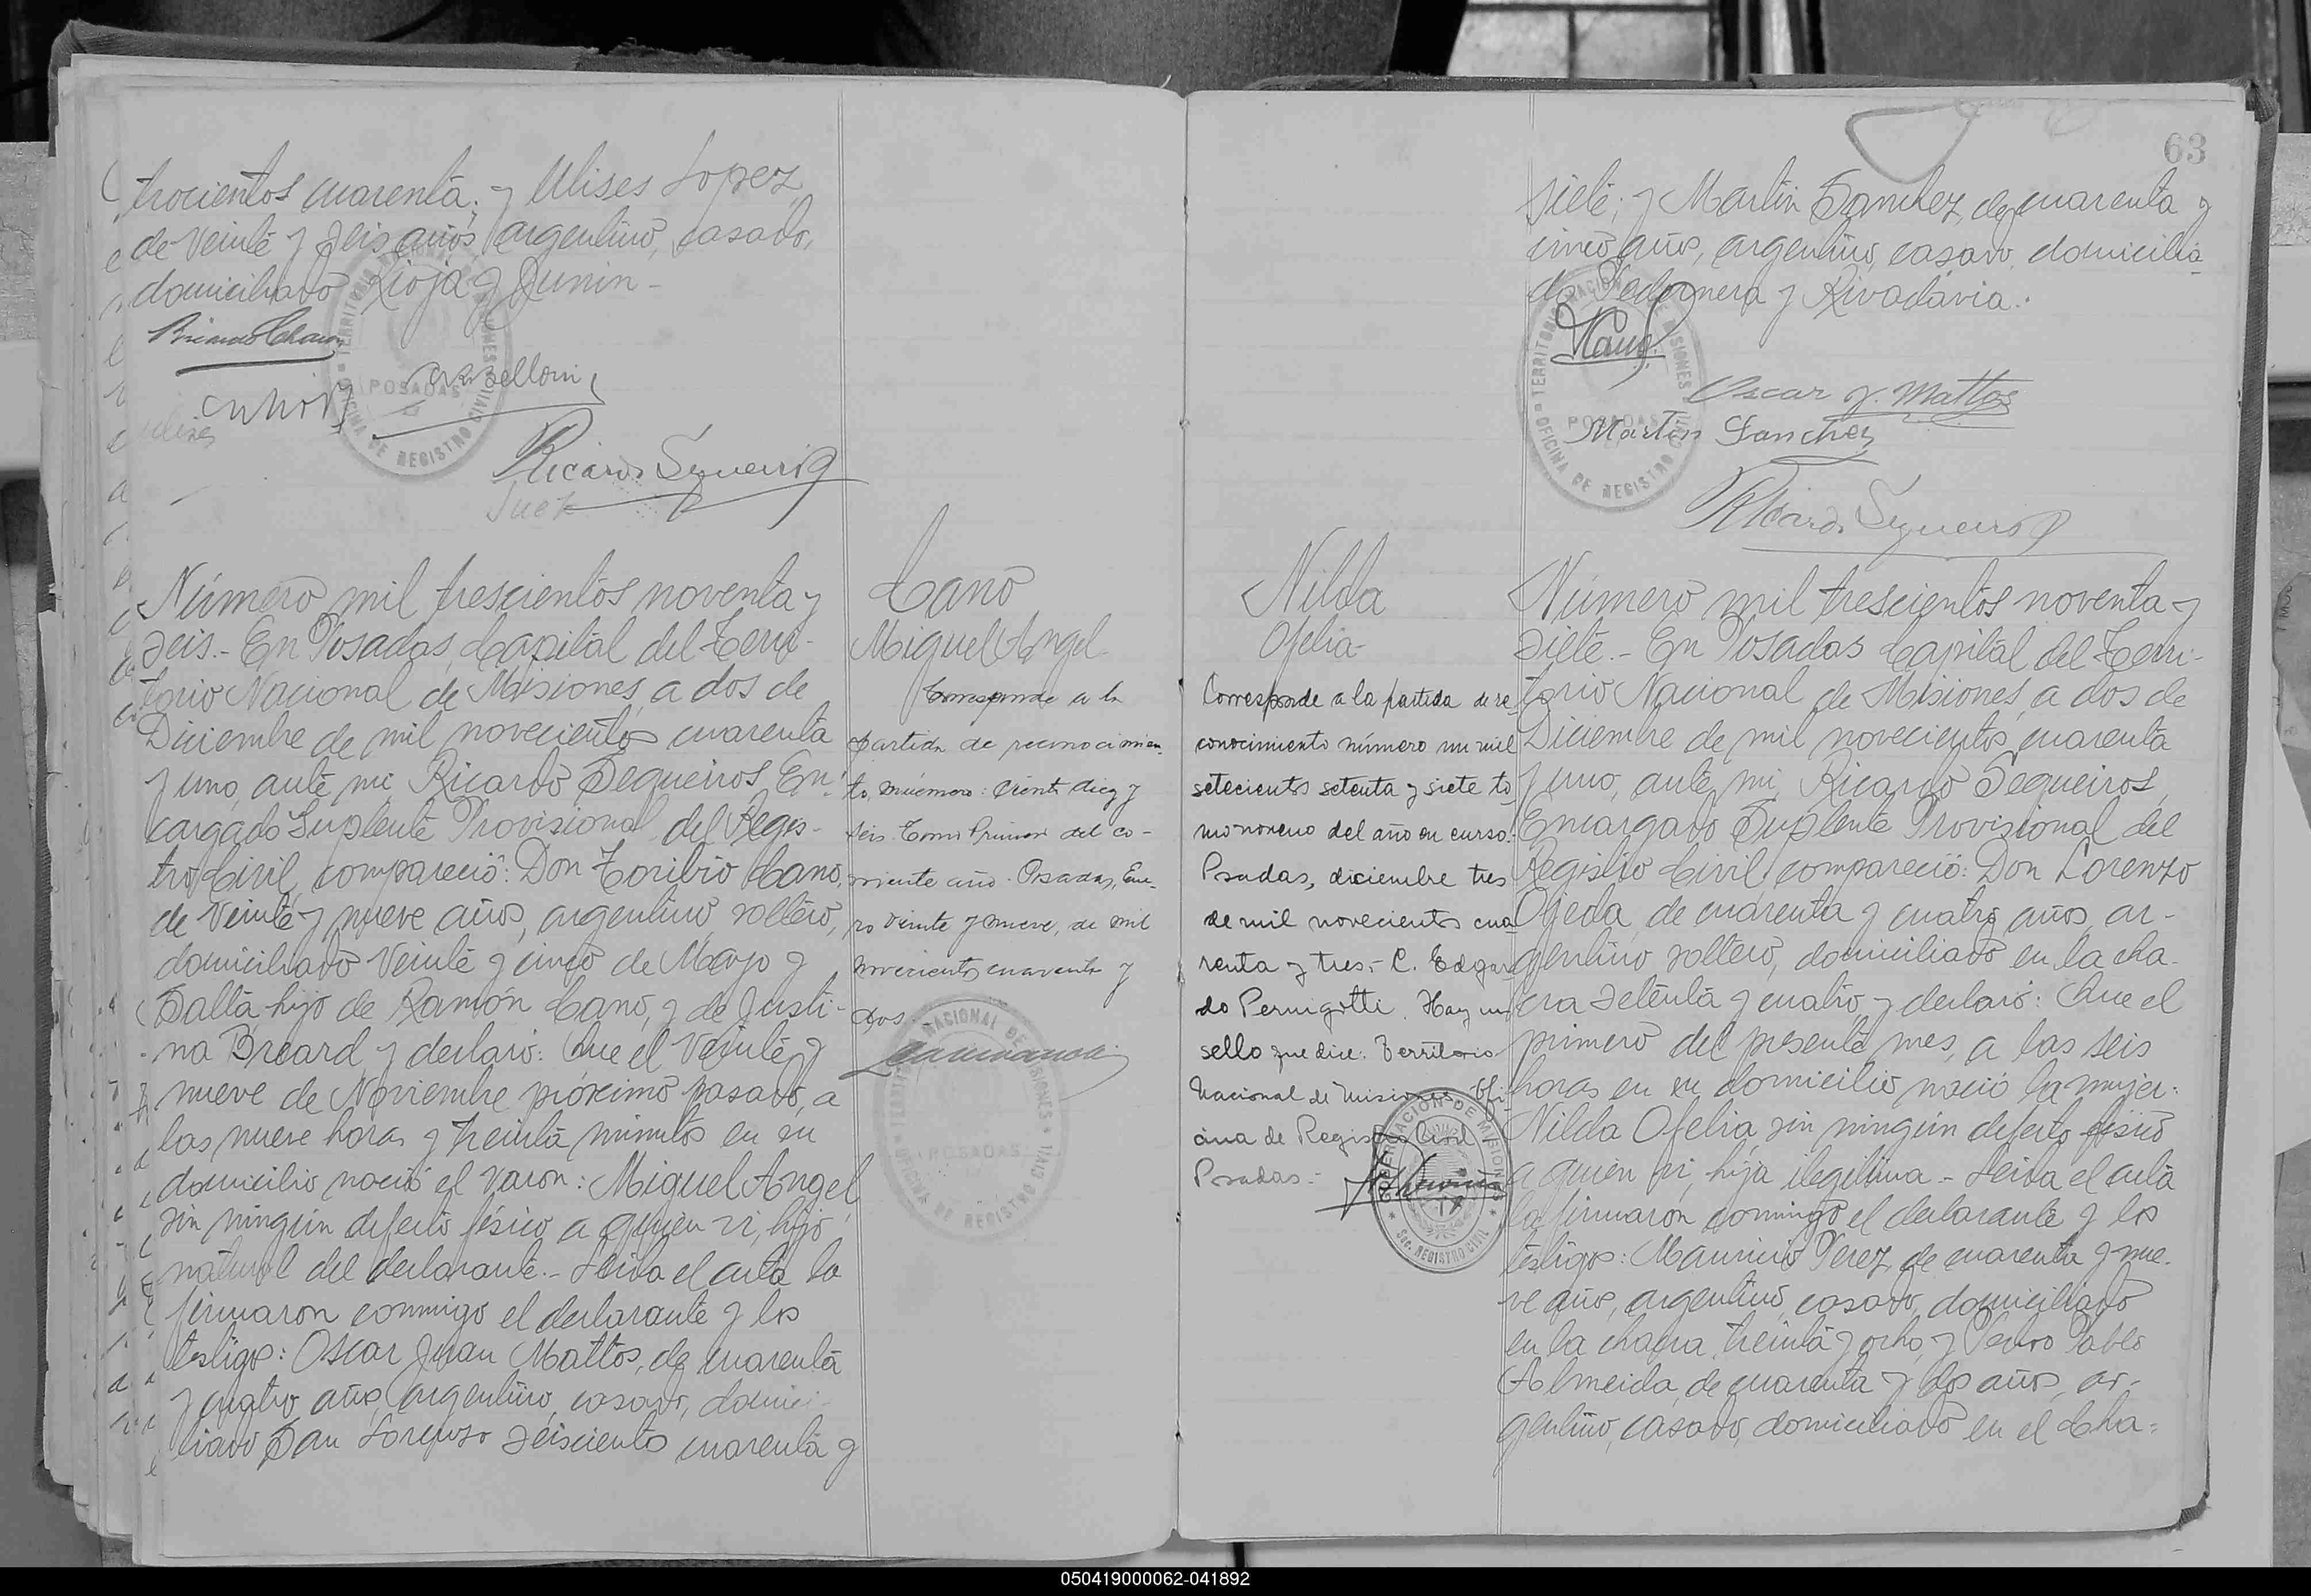 trocientos cuarenta; y Ulises Lopez,
de veinte y seis años, argentino, casado,
domiciliado Rioja y Junin-
TERRITORIO NACIONAL DE MISIONES
POSADAS
OFICINA DE REGISTRO CIVIL
Ricardo Sequeiros
Juez
Número mil trescientos noventa y
seis.- En Posadas, Capital del Terri-
torio Nacional de Misiones, a dos de
Diciembre de mil novecientos cuarenta
y uno, ante mi Ricardo Sequeiros, En-
cargado Suplente Provisional del Regis-
tro Civil, compareció: Don Toribio Cano,
de veinte y nueve años, argentino, soltero,
domiciliado Veinte y cinco de Mayo y
Salta-hijo de Ramón Cano, y de Justi-
na Breard y declaró: Que el veinte y
nueve de Noviembre próximo pasado, a
las nueve horas y treinta minutos en su
domicilio nació el varon: Miguel Angel,
sin ningún defecto fésico a quien vi, hijo
natural del declarante.- Leida el acta la
firmaron conmigo el declarante y los
testigos: Oscar Juan Mattos, de cuarenta
y cuatro años, argentino, casado, domici-
liado San Lorenzo seiscientos cuarenta y
Cano
Miguel Angel
Corresponde a la
partida de reconocimien-
to, número: ciento diez y
seis Tomo Primero del co-
rriente año. Posadas, Ene-
ro veinte y nueve, de mil
novecientos cuarenta y
dos.
TERRITORIO NACIONAL DE MISIONES
POSADAS
OFICINA DE REGISTRO CIVIL
63
siete; y Martín Sanchez, de cuarenta y
cinco años, argentino, casado, domicilia-
do Pedernera y Rivadavia.
TERRITORIO NACIONAL DE MISIONES
POSADAS
OFICINA DE REGISTRO CIVIL
Oscar J. Mattos
Martin Sanchez
Ricardo Sequeiros
Nilda
Ofelia-
Corresponde a la partida de re-
conocimiento número un mil
setecientos setenta y siete to-
mo noveno del año en curso.
Posadas, diciembre tres
de mil novecientos cua-
renta y tres.- C. Edgar-
do Pernigotti. Hay un
sello que dice: Territorio
Nacional de Misiones Ofi-
cina de Registro Civil
Posadas.-
GOBERNACIÓN DE MISIONES
Sec. REGISTRO CIVIL
Número mil trescientos noventa y
siete.- En Posadas Capital del Terri-
torio Nacional de Misiones, a dos de
Diciembre de mil novecientos cuarenta
y uno, ante mi, Ricardo Sequeiros,
Encargado Suplente Provisional del
Registro Civil compareció: Don Lorenzo
Ojeda, de cuarenta y cuatro años, ar-
gentino soltero, domiciliado en la cha-
cra setenta y cuatro, y declaró: Que el
primero del presente mes, a las seis
horas en su domicilio nació la mujer:
Nilda Ofelia, sin ningún defecto fésico
a quien vi, hija ilegitima.- Leida el acta
la firmaron conmigo el declarante y los
testigos: Mauricio Perez, de cuarenta y nue-
ve años, argentino, casado, domiciliado
en la chacra treinta y ocho, y Pedro Pablo
Almeida, de cuarenta y dos años, ar-
gentino, casado, domiciliado en el Cha-
050419000062-041892